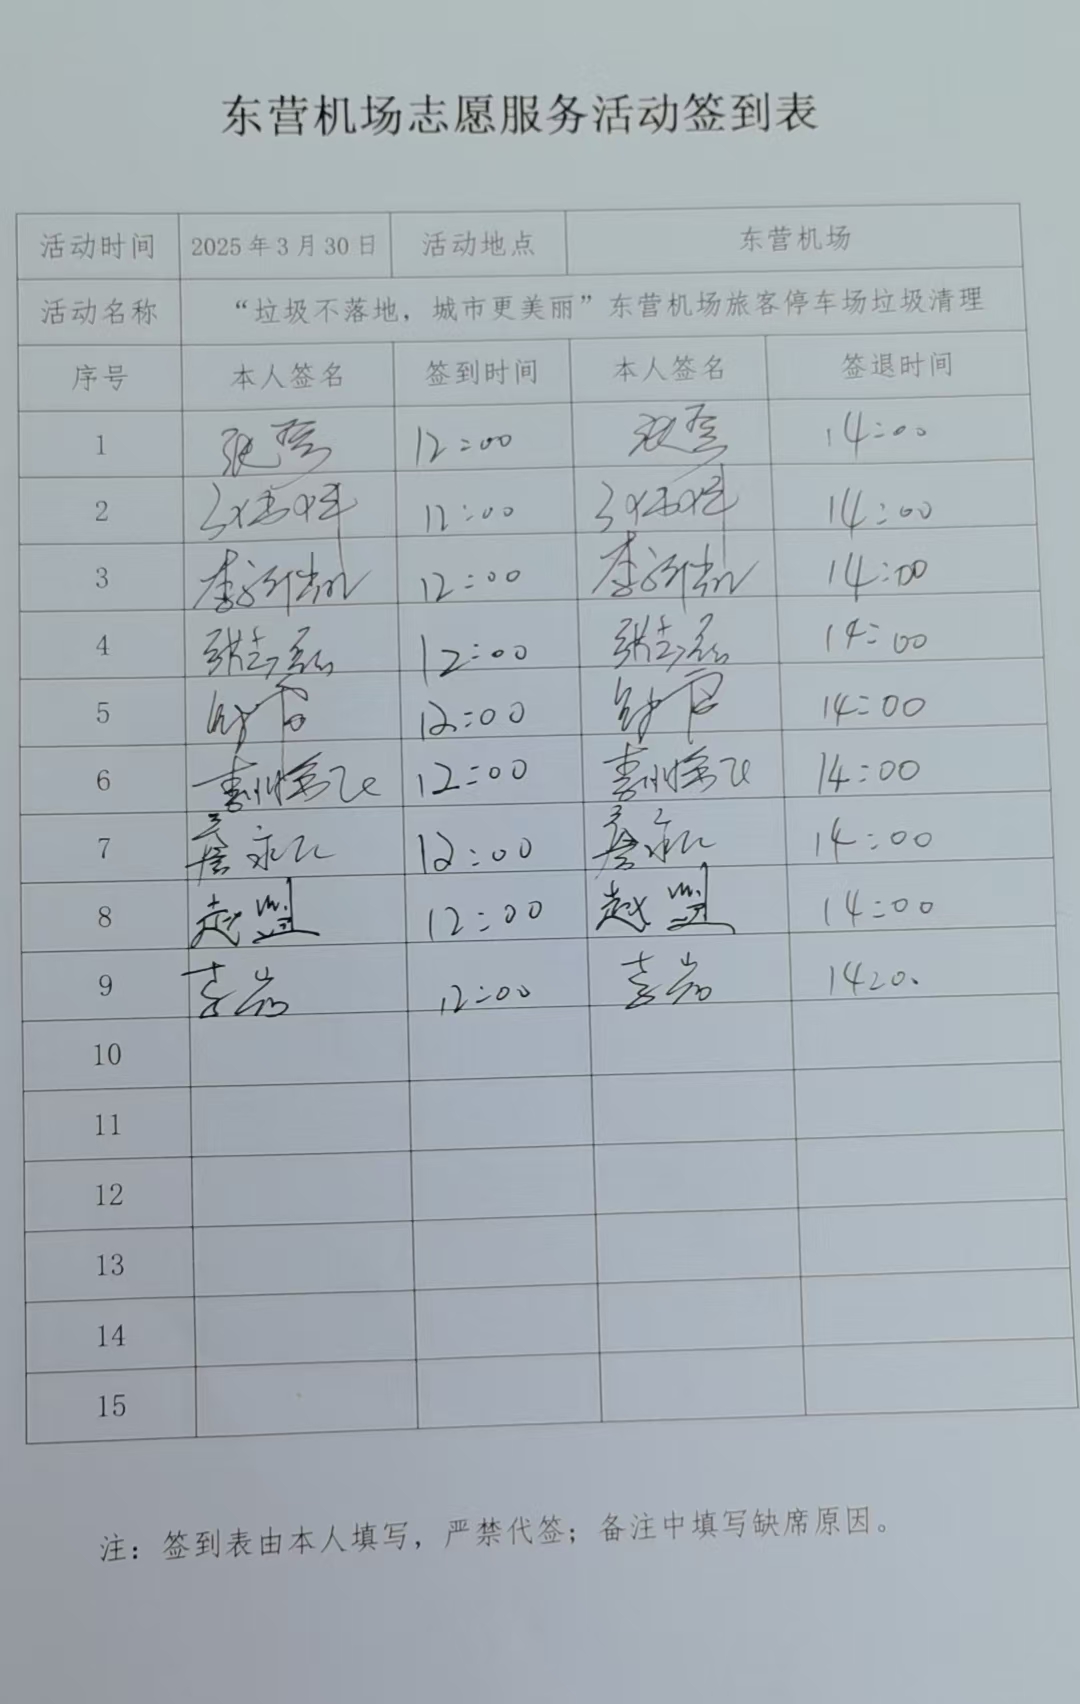 东营机场志愿服务活动签到表
活动时间 2025年3月30日 活动地点 东营机场
活动名称 “垃圾不落地，城市更美丽”东营机场旅客停车场垃圾清理
序号 本人签名 签到时间 本人签名 签退时间
1 12:00 14:00
2 12:00 14:00
3 12:00 14:00
4 张志磊 12:00 张志磊 14:00
5 12:00 14:00
6 12:00 14:00
7 12:00 14:00
8 12:00 14:00
9 李岩 12:00 李岩
10
11
12
13
14
15
注：签到表由本人填写，严禁代签；备注中填写缺席原因。